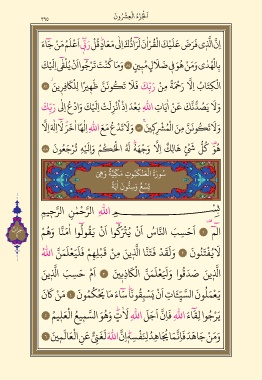 الجزء العشرون
٣٩٥
اِنَّ الَّذٖى فَرَضَ عَلَيْكَ الْقُرْاٰنَ لَرَٓادُّكَ اِلٰى مَعَادٍ قُلْ رَبّٖٓى اَعْلَمُ مَنْ جَٓاءَ
بِالْهُدٰى وَمَنْ هُوَ فٖى ضَلَالٍ مُبٖينٍ وَمَا كُنْتَ تَرْجُٓوا اَنْ يُلْقٰٓى اِلَيْكَ
الْكِتَابُ اِلَّا رَحْمَةً مِنْ رَبِّكَ فَلَا تَكُونَنَّ ظَهٖيرًا لِلْكَافِرٖينَ
وَلَا يَصُدُّنَّكَ عَنْ اٰيَاتِ اللّٰهِ بَعْدَ اِذْ اُنْزِلَتْ اِلَيْكَ وَادْعُ اِلٰى رَبِّكَ
وَلَا تَكُونَنَّ مِنَ الْمُشْرِكٖينَ وَلَا تَدْعُ مَعَ اللّٰهِ اِلٰهًا اٰخَرَ لَٓا اِلٰهَ اِلَّا
هُوَ كُلُّ شَیْءٍ هَالِكٌ اِلَّا وَجْهَهُ لَهُ الْحُكْمُ وَاِلَيْهِ تُرْجَعُونَ
سُورَةُ الْعَنْكَبُوتِ مَكِّيَّةٌ وَهِىَ
تِسْعٌ وَسِتُّونَ اٰيَةً
بِسْمِ اللّٰهِ الرَّحْمٰنِ الرَّحٖيمِ
الٓمٓ اَحَسِبَ النَّاسُ اَنْ يُتْرَكُٓوا اَنْ يَقُولُٓوا اٰمَنَّا وَهُمْ
لَا يُفْتَنُونَ وَلَقَدْ فَتَنَّا الَّذٖينَ مِنْ قَبْلِهِمْ فَلَيَعْلَمَنَّ اللّٰهُ
الَّذٖينَ صَدَقُوا وَلَيَعْلَمَنَّ الْكَاذِبٖينَ اَمْ حَسِبَ الَّذٖينَ
يَعْمَلُونَ السَّيِّـَٔاتِ اَنْ يَسْبِقُونَا سَٓاءَ مَا يَحْكُمُونَ مَنْ كَانَ
يَرْجُوا لِقَٓاءَ اللّٰهِ فَاِنَّ اَجَلَ اللّٰهِ لَاٰتٍ وَهُوَ السَّمٖيعُ الْعَلٖيمُ
وَمَنْ جَاهَدَ فَاِنَّمَا يُجَاهِدُ لِنَفْسِهٖ اِنَّ اللّٰهَ لَغَنِىٌّ عَنِ الْعَالَمٖينَ